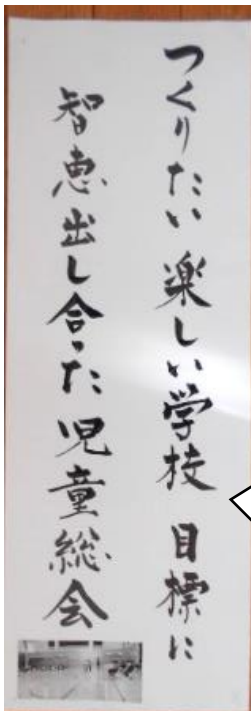 つくりたい 楽しい学校 目標に
智恵出し合った 児童総会